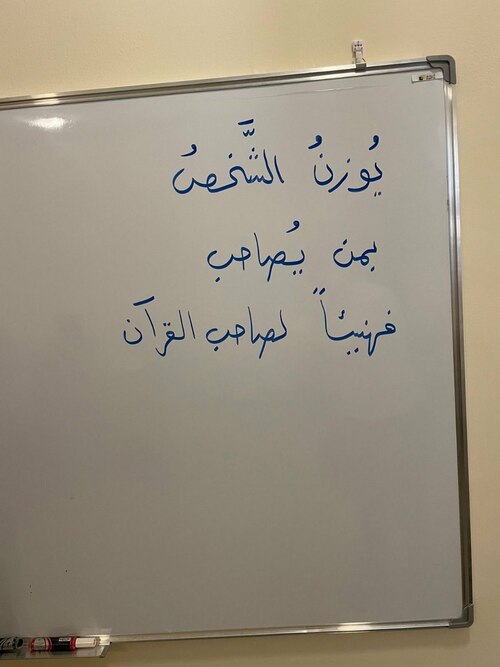 يُوزنُ الشَّخصُ
بمن يُصاحب
فهنيئاً لصاحب القرآن